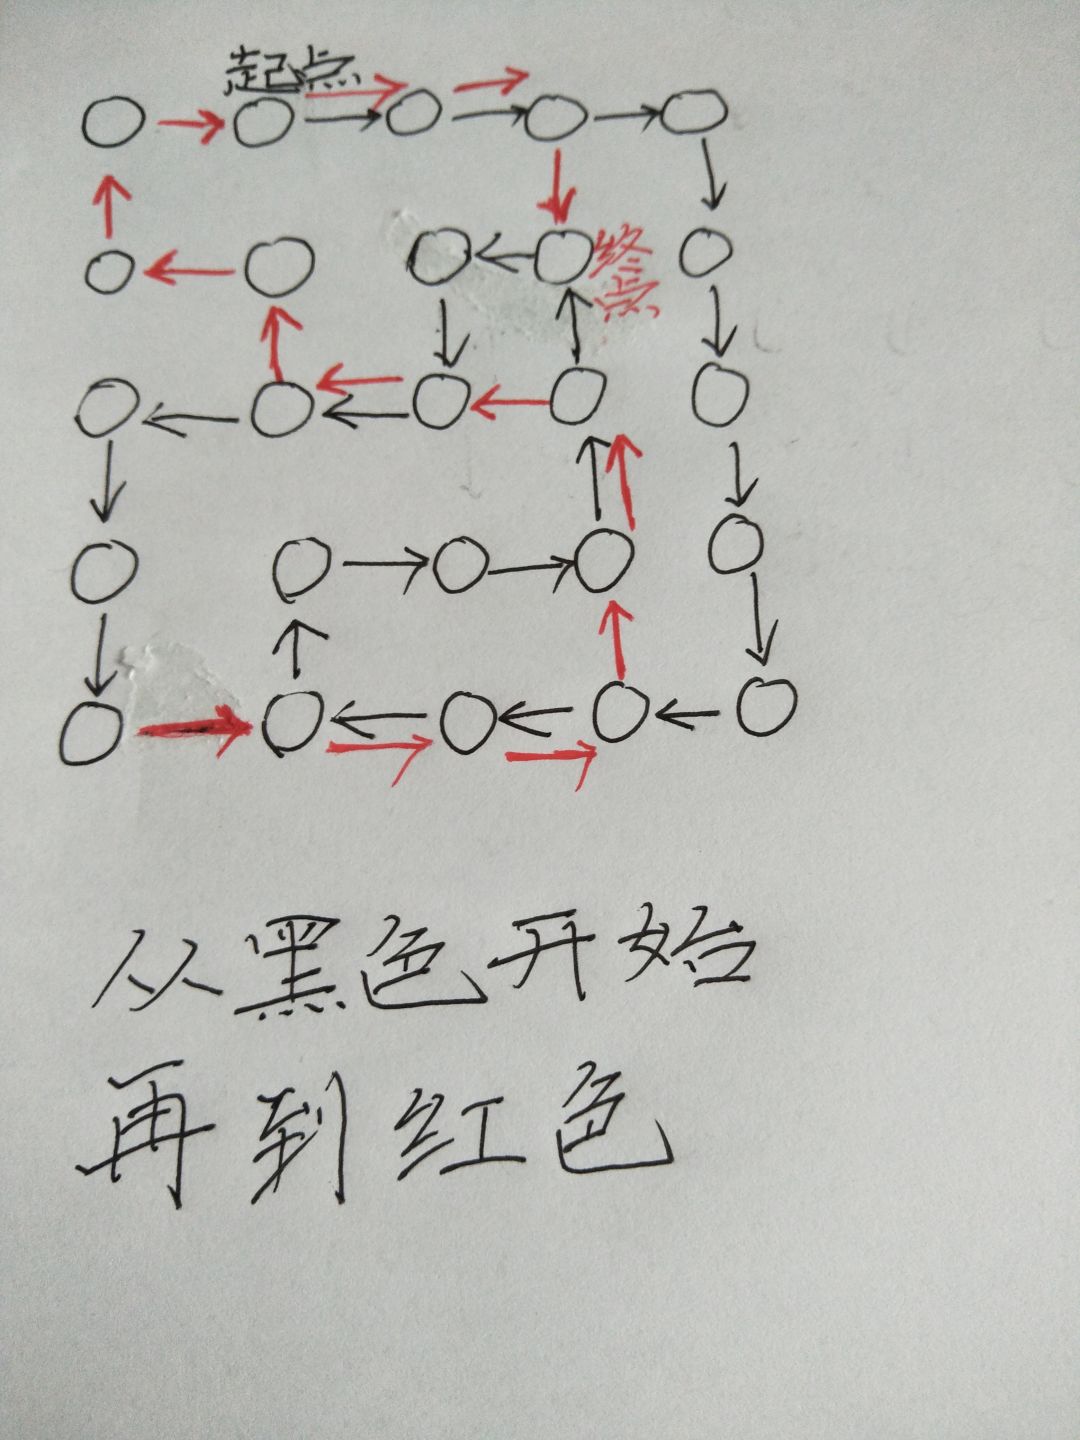 起点
终点
从黑色开始
再到红色